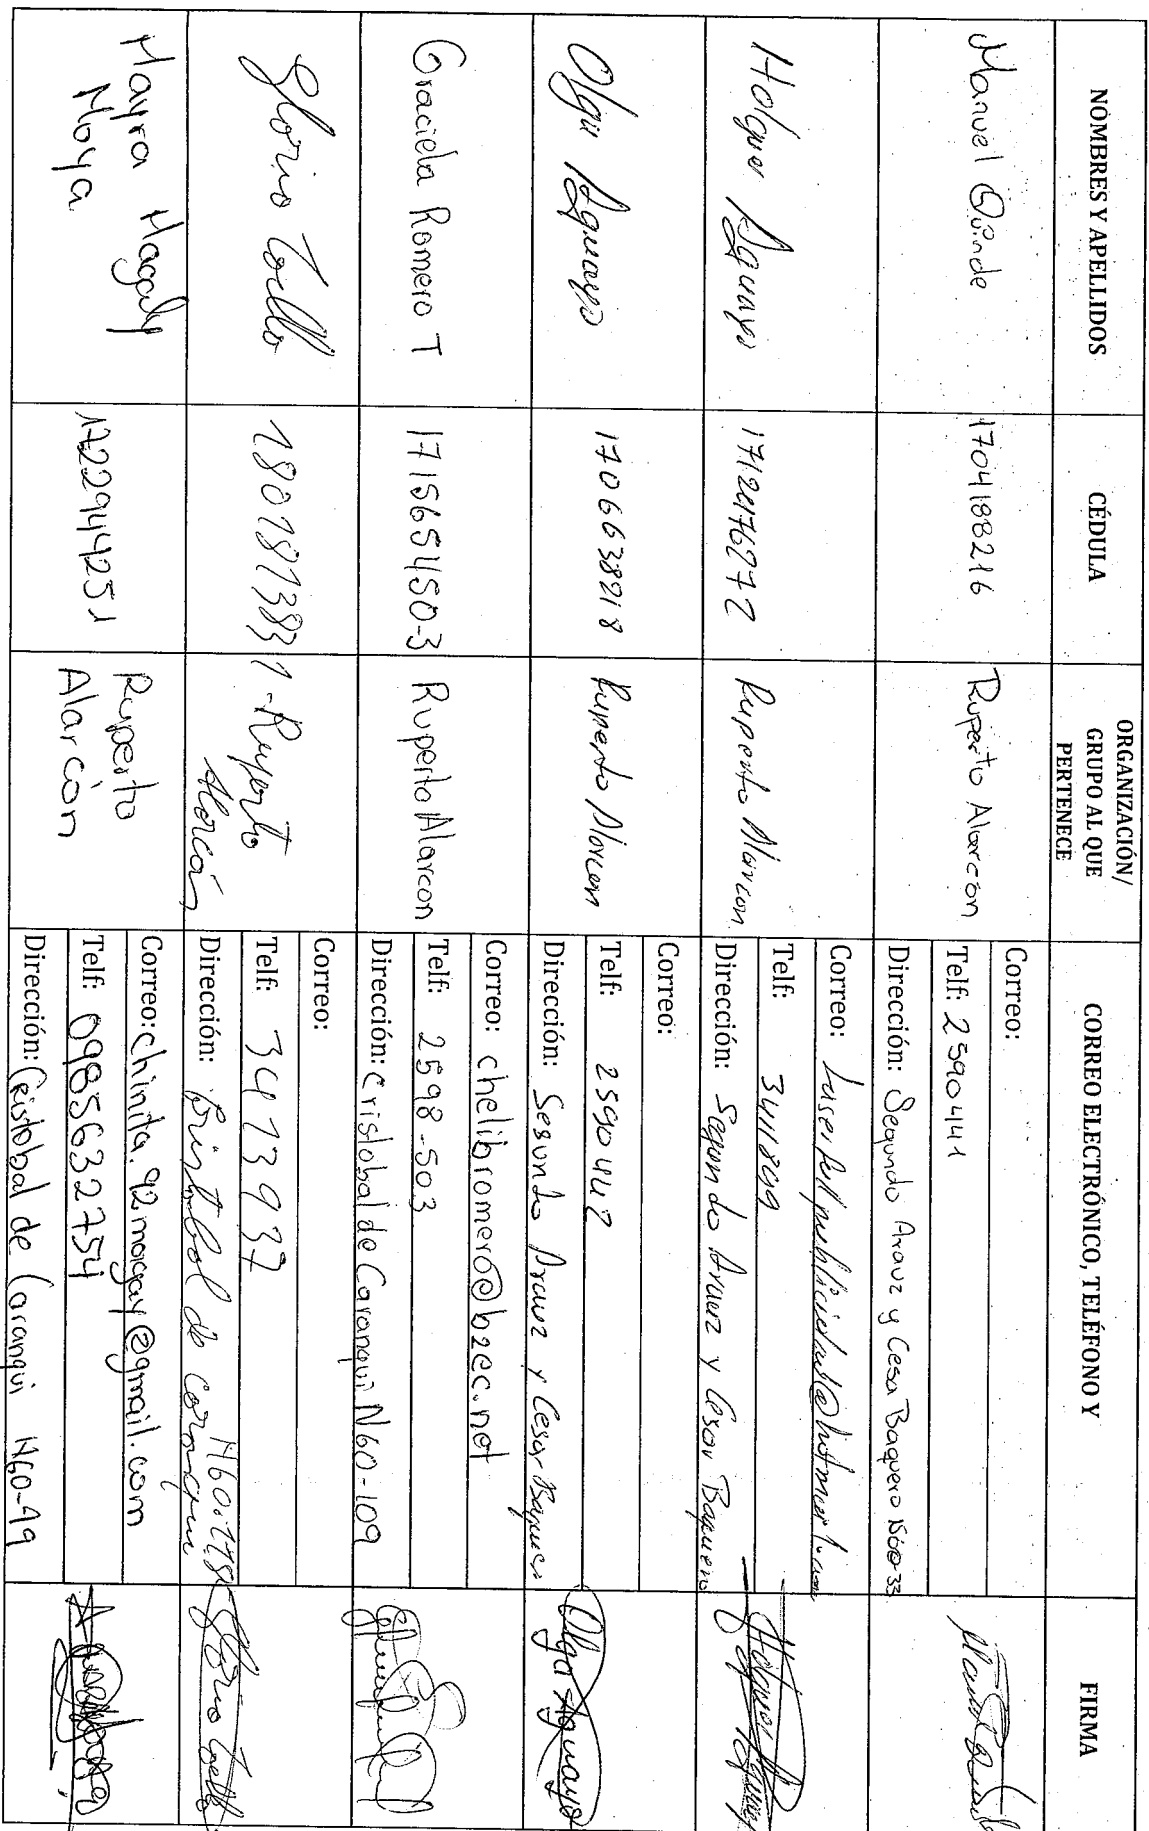 NOMBRES Y APELLIDOS
CÉDULA
ORGANIZACIÓN/
GRUPO AL QUE
PERTENECE
CORREO ELECTRÓNICO, TELÉFONO Y
FIRMA
Manuel Quinde
1704188216
Ruperto Alarcón
Correo:
Telf: 2590441
Dirección: Segundo Arauz y Cesa Baquero
Holguer Aguayo
Ruperto Alarcon
Correo:
Telf: 3411899
Dirección: Segundo Arauz y Cesar Baquero
Olga Aguayo
1706638218
Ruperto Alarcon
Correo:
Telf: 2590442
Dirección: Segundo Arauz y Cesar Baquero
Olga Aguayo
Graciela Romero T
171565450-3
Ruperto Alarcon
Correo: chelibromero@b2ec.net
Telf: 2598-503
Dirección: Cristobal de Caranqui N60-109
Glorio Coello
180181383
1-Ruperto
Alarcón
Correo:
Telf: 3413937
Dirección: de
Mayra Magaly
Moya
1722944251
Ruperto
Alarcón
Correo: chinita.92magay@gmail.com
Telf: 0985632754
Dirección: Cristobal de Caranqui N60-49